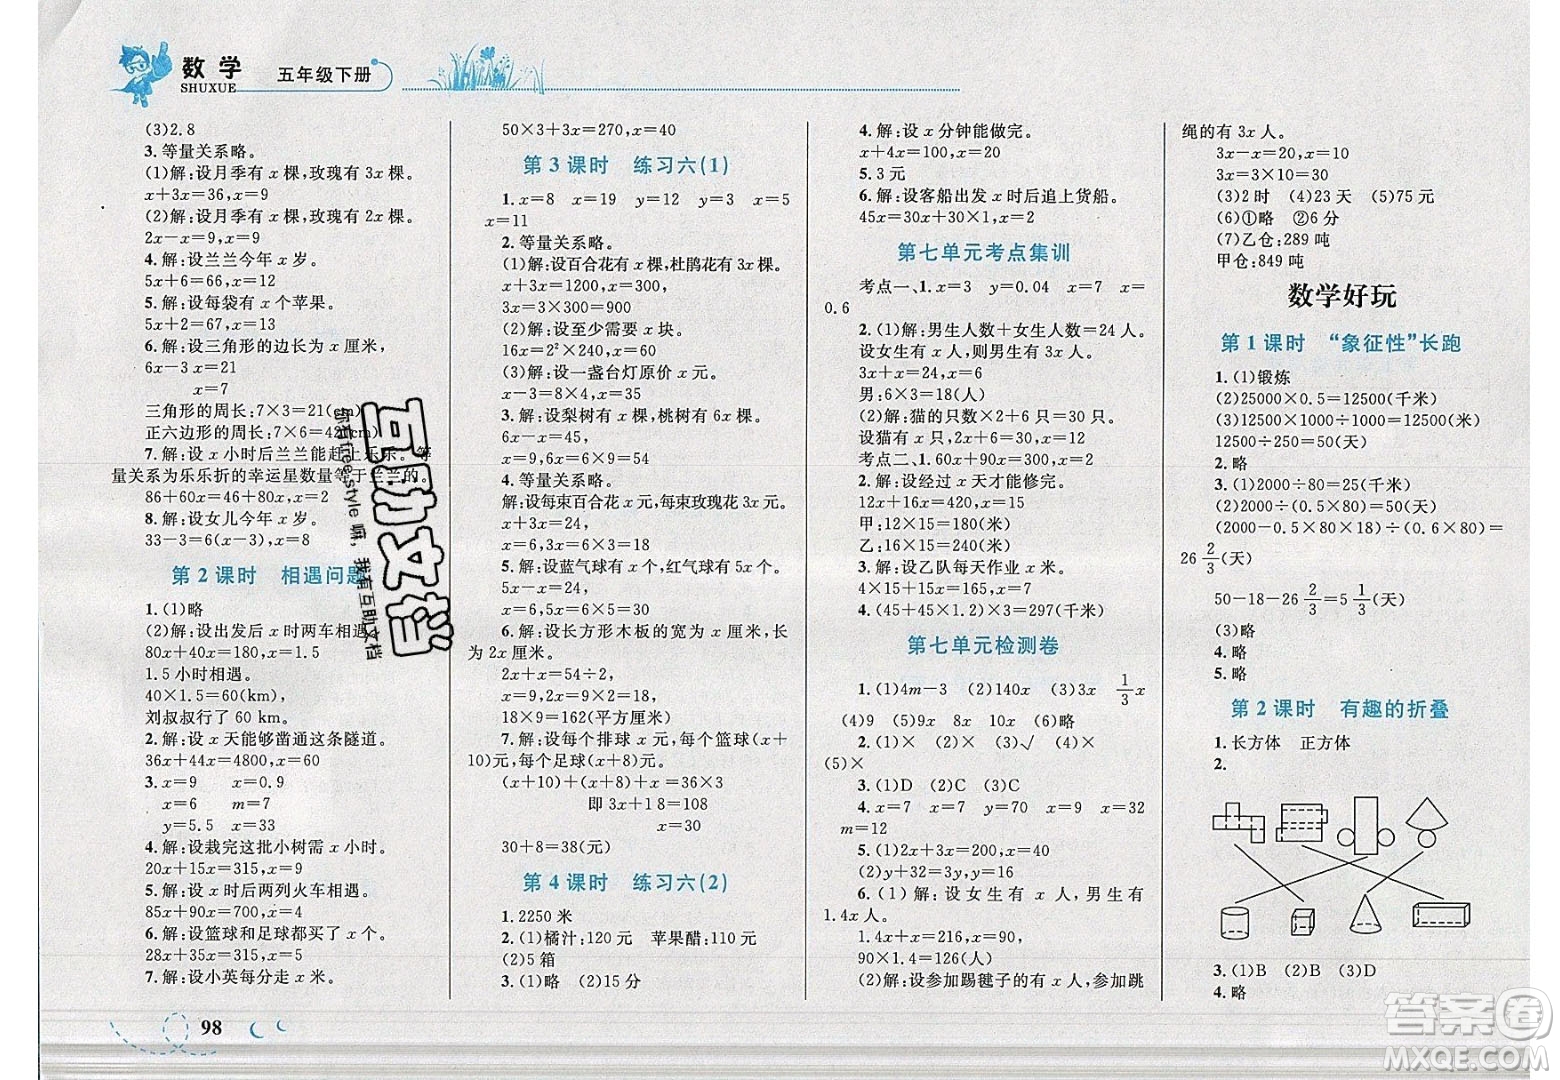 数学
SHUXUE
五年级下册
(3)2.8
3.等量关系略。
(1)解:设月季有 x 棵,玫瑰有 3x 棵。
x+3x=36,x=9
(2)解:设月季有 x 棵,玫瑰有 2x 棵。
2x-x=9,x=9
4.解:设兰兰今年 x 岁。
5x+6=12x=72
5.解:设每袋有 x 个苹果。
5x+2=67,x=13
6.解:设三角形的边长为 x 厘米,
6x-3x=21
x=7
三角形的周长:7×3=21(cm)
正六边形的周长:7×6=42(cm)
7.解:设 x 小时后兰兰能赶上乐乐。等
量关系为乐乐折的幸运星数量等于兰兰的。
86+60x=46+80x,x=2
8.解:设女儿今年 x 岁。
33-3=6(x-3),x=8
第 2 课时 相遇问题
1.(1)略
(2)解:设出发后 x 时两车相遇。
80x+40x=180,x=1.5
1.5 小时相遇。
40×1.5=60(km),
刘叔叔行了 60 km。
2.解:设 x 天能够凿通这条隧道。
36x+44x=4800,x=60
3.x=9 x=0.9
x=6 m=7
y=5.5 x=33
4.解:设栽完这批小树需 x 小时。
20x+15x=315,x=9
5.解:设 x 时后两列火车相遇。
85x+90x=700,x=4
6.解:设篮球和足球都买了 x 个。
28x+35x=315,x=5
7.解:设小英每分走 x 米。
50×3+3x=270,x=40
第 3 课时 练习六(1)
1.x=8 x=19 y=12 y=3 x=5
x=11
2.等量关系略。
(1)解:设百合花有 x 棵,杜鹃花有 3x 棵。
x+3x=1200,x=300
3x=3×300=900
(2)解:设至少需要 x 块。
16x=20×20,x=25
(3)解:设一盏台灯原价 x 元。
x-8=27,x=35
3.解:设梨树有 x 棵,桃树有 6x 棵。
6x-x=45,
x=9,6x=6×9=54
4.等量关系略。
解:设每束百合花 x 元,每束玫瑰花 3x 元。
x+3x=24,
x=6,3x=3×6=18
5.解:设蓝气球有 x 个,红气球有 6x 个。
6x-x=30,
x=6,6x=6×6=36
6.解:设长方形木板的宽为 x 厘米,则
长为 2x 厘米。
2x+x=54÷2,
x=9,2x=18
18×9=162(平方厘米)
7.解:设每个排球 x 元,每个篮球(x+
10)元,每个足球(x+8)元。
(x+10)+(x+8)+x=36×3
即 3x+18=108
x=30
30+8=38(元)
第 4 课时 练习六(2)
1.2250 米
2.(1)橘汁:120 元 苹果醋:110 元
(2)5 箱
3.(1)略 (2)15 分
4.解:设 x 分钟能做完。
x+4x=100,x=20
5.3 元
6.解:设客船出发 x 时后追上货船。
45x=30x+30×1,x=2
第七单元考点集训
考点一、1.x=3 y=0.04 x=7 x=
0.6
2.(1)解:男生人数+女生人数=24 人。
设女生有 x 人,则男生有 3x 人。
3x+x=24,x=6
男:6×3=18(人)
(2)解:猫的只数×2+6=狗的只数
设猫有 x 只。2x+6=20,x=7
考点二、1.60x+80x=420,x=3
2.解:设经过 x 天才能修完。
12x+16x=420,x=15
甲:12×15=180(米)
乙:16×15=240(米)
3.解:设乙队每天作业 x 米。
4×15+4x=120,x=15
4.(45+45×1.2)×3=297(千米)
第七单元检测卷
1.(1)4m-3 (2)140x (3)3x 1/3 x
(4)9 (5)9x 8x 10x (6)略
2.(1)× (2)× (3)√ (4)×
(5)×
3.(1)D (2)C (3)C
4.x=7 x=7 y=70 x=9 x=32
m=12
5.(1)2x+x=120,x=40
(2)y+32=3y,y=16
6.(1)解:设女生有 x 人,男生有
1.4x 人。
1.4x+x=216,x=90
90×1.4=126(人)
(2)解:设参加踢毽子的有 x 人,参加跳
绳的有 3x 人。
3x-x=20,x=10
3x=3×10=30
(3)2 时 (4)23 天 (5)75 元
(6)①略 ②6 分
(7)乙仓:289 吨
甲仓:849 吨
数学好玩
第 1 课时 “象征性”长跑
1.(1)锻炼
(2)25000×0.5=12500(千米)
(3)12500×1000÷1000=12500(千米)
12500÷250=50(天)
2.略
3.(1)2000÷80=25(千米)
(2)2000×0.5÷(80×0.25)=50(天)
(2000-0.5×80×18)÷(0.6×80)=
26 2/3 (天)
50-18-26 2/3 = 5 1/3 (天)
(3)略
4.略
5.略
第 2 课时 有趣的折叠
1.长方体 正方体
2.
3.(1)B (2)B (3)D
4.略
98
互助文档
你有freestyle 嘛，我有互助文档
答案圈
MXQE.COM